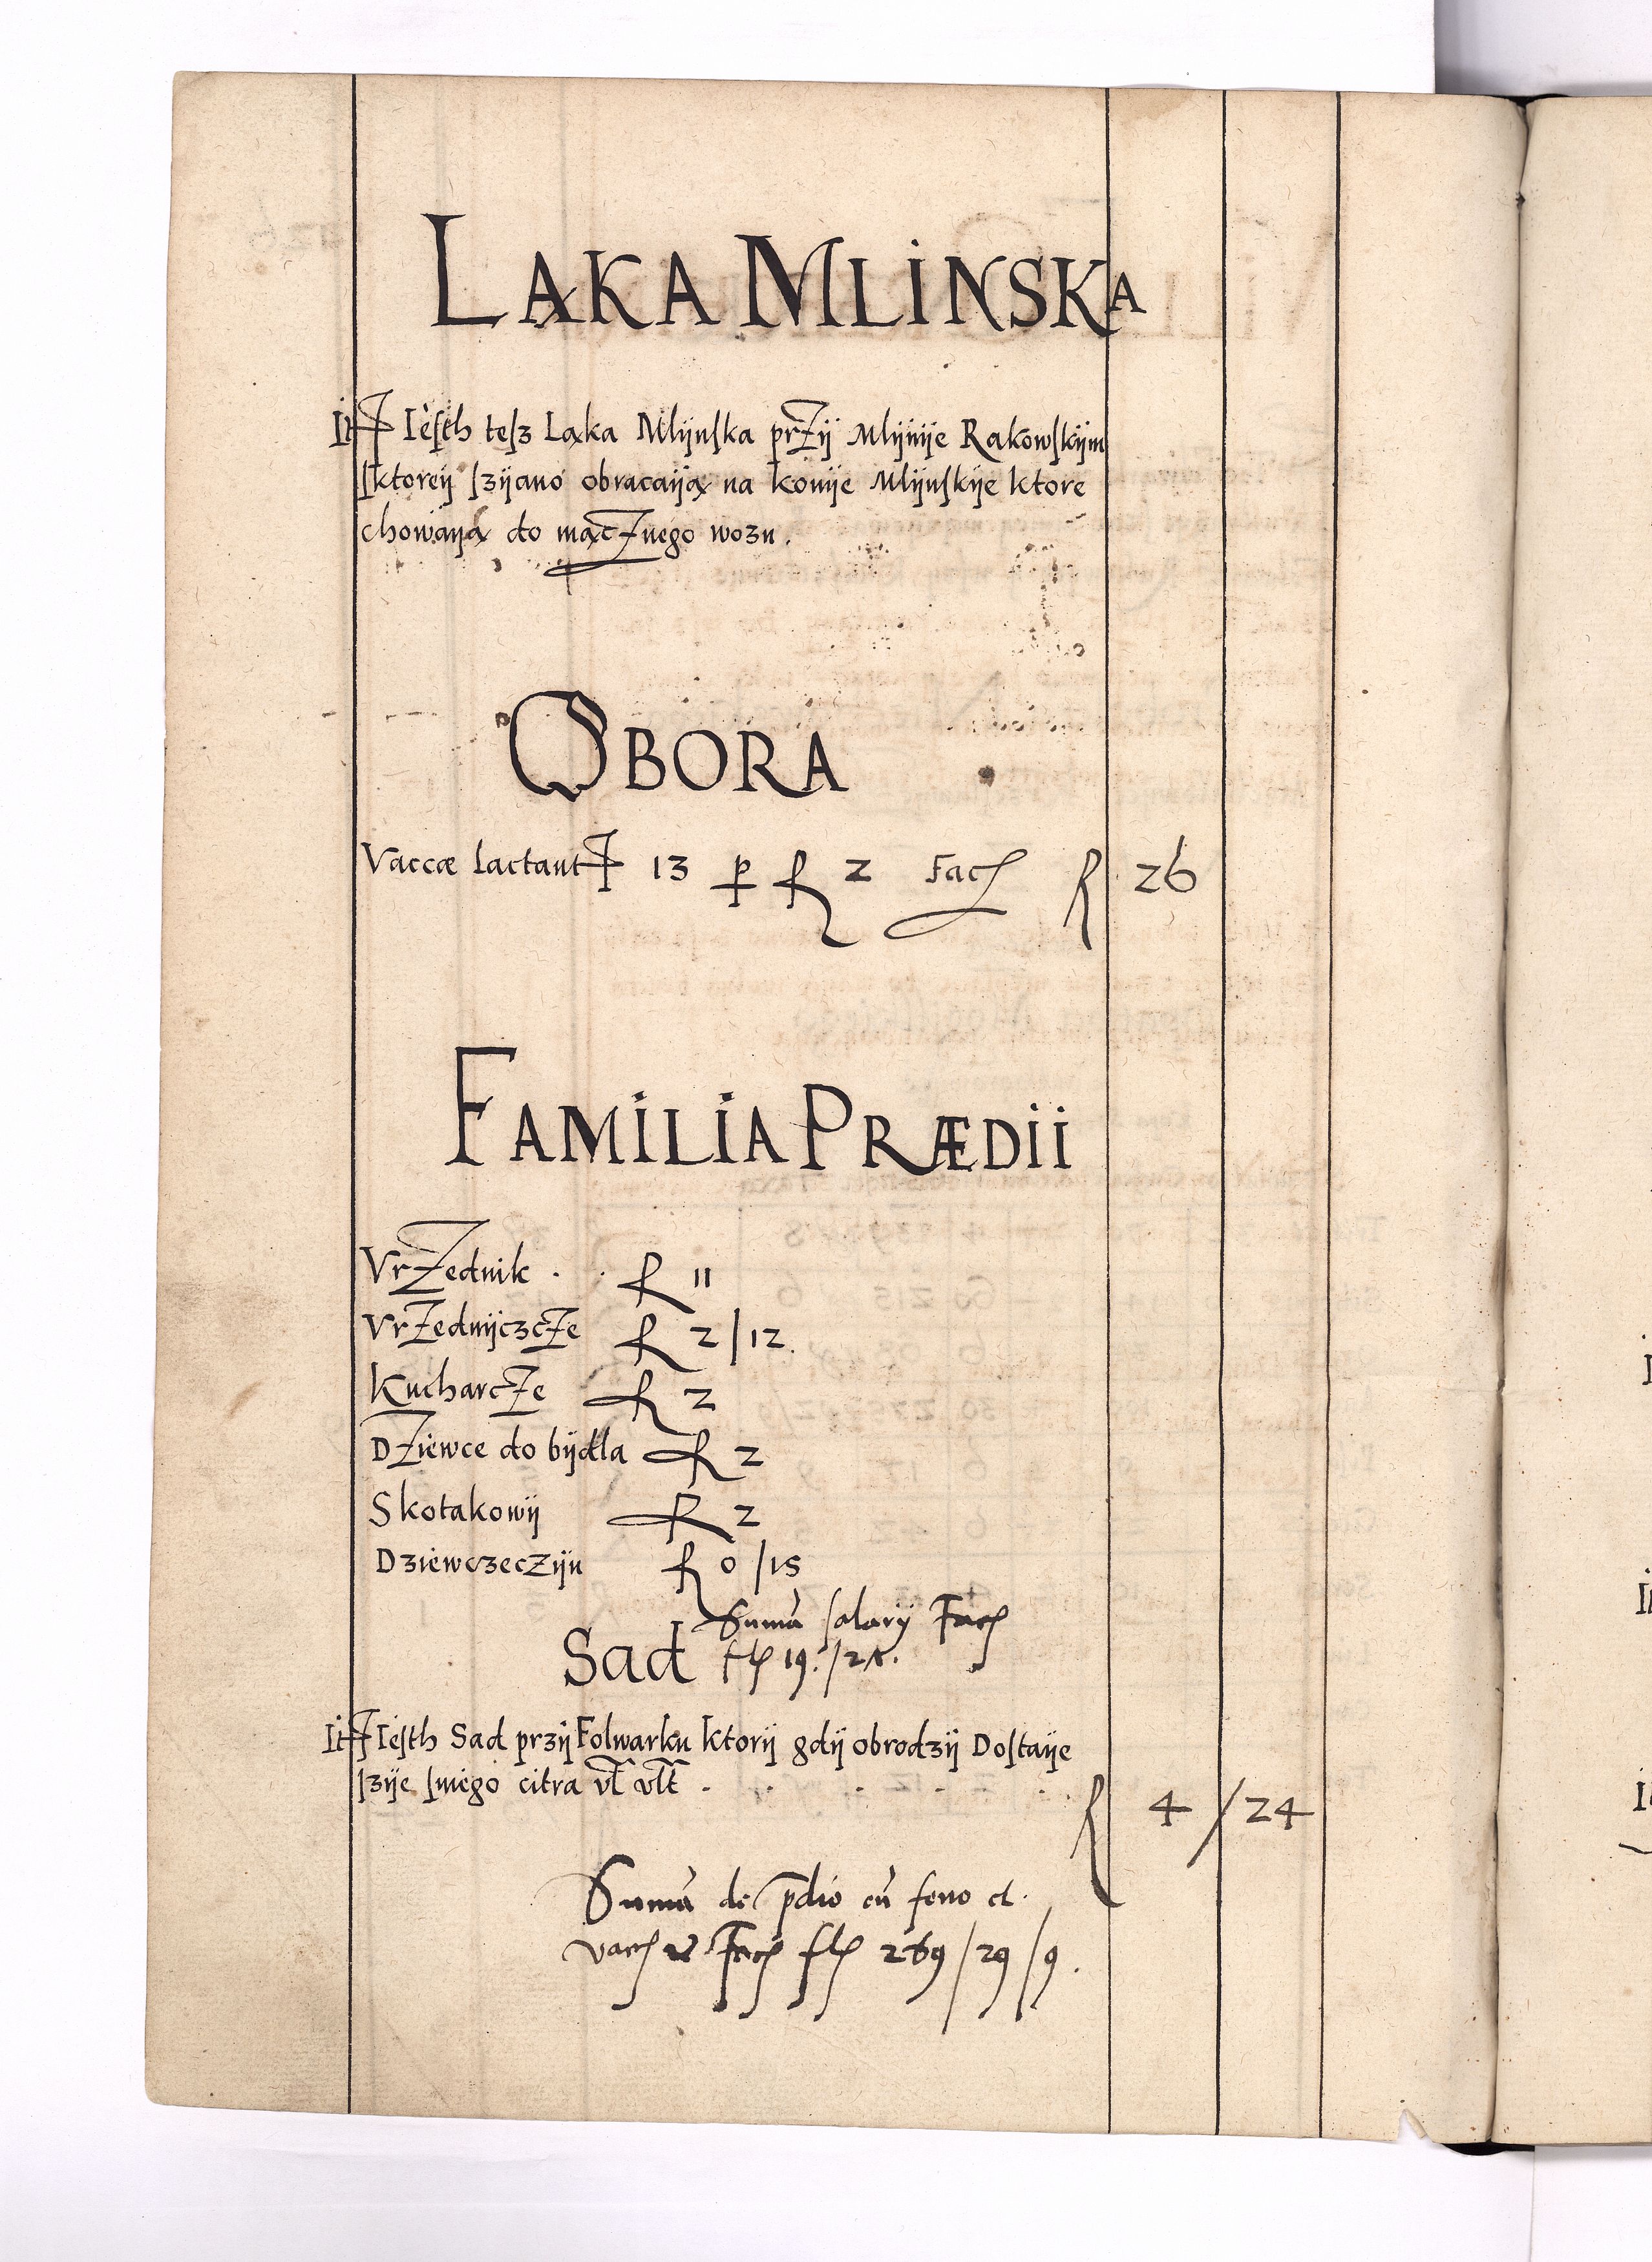 ŁĄKA MLINSKA
It Iesth tesz Łąka Mlijnska przij Mlijnije Rakowskijm
sktoreij szijano obracaiją na konije Mlijnskije ktore
chowaiją do mącznego wozu.
OBORA
Vaccæ lactant 13 p fl 2 Fac fl 26
FAMILIA PRÆDII
Vrzednik . . fl 11
Vrzednijczcze fl 2/12.
Kucharcze fl 2
Dziewce do bijdla fl 2
Skotakowij fl 2
Dziewczeczijn fl 0/15
Suma salarij Fac
Sad fl 19./2
It Iesth Sad przij Folwarku ktorij gdij obrodzij Dostaije
szije snie̍go citra vl vlt . fl 4/24
Suma de pdio cu feno et
vac Fac fl 269/29/9.